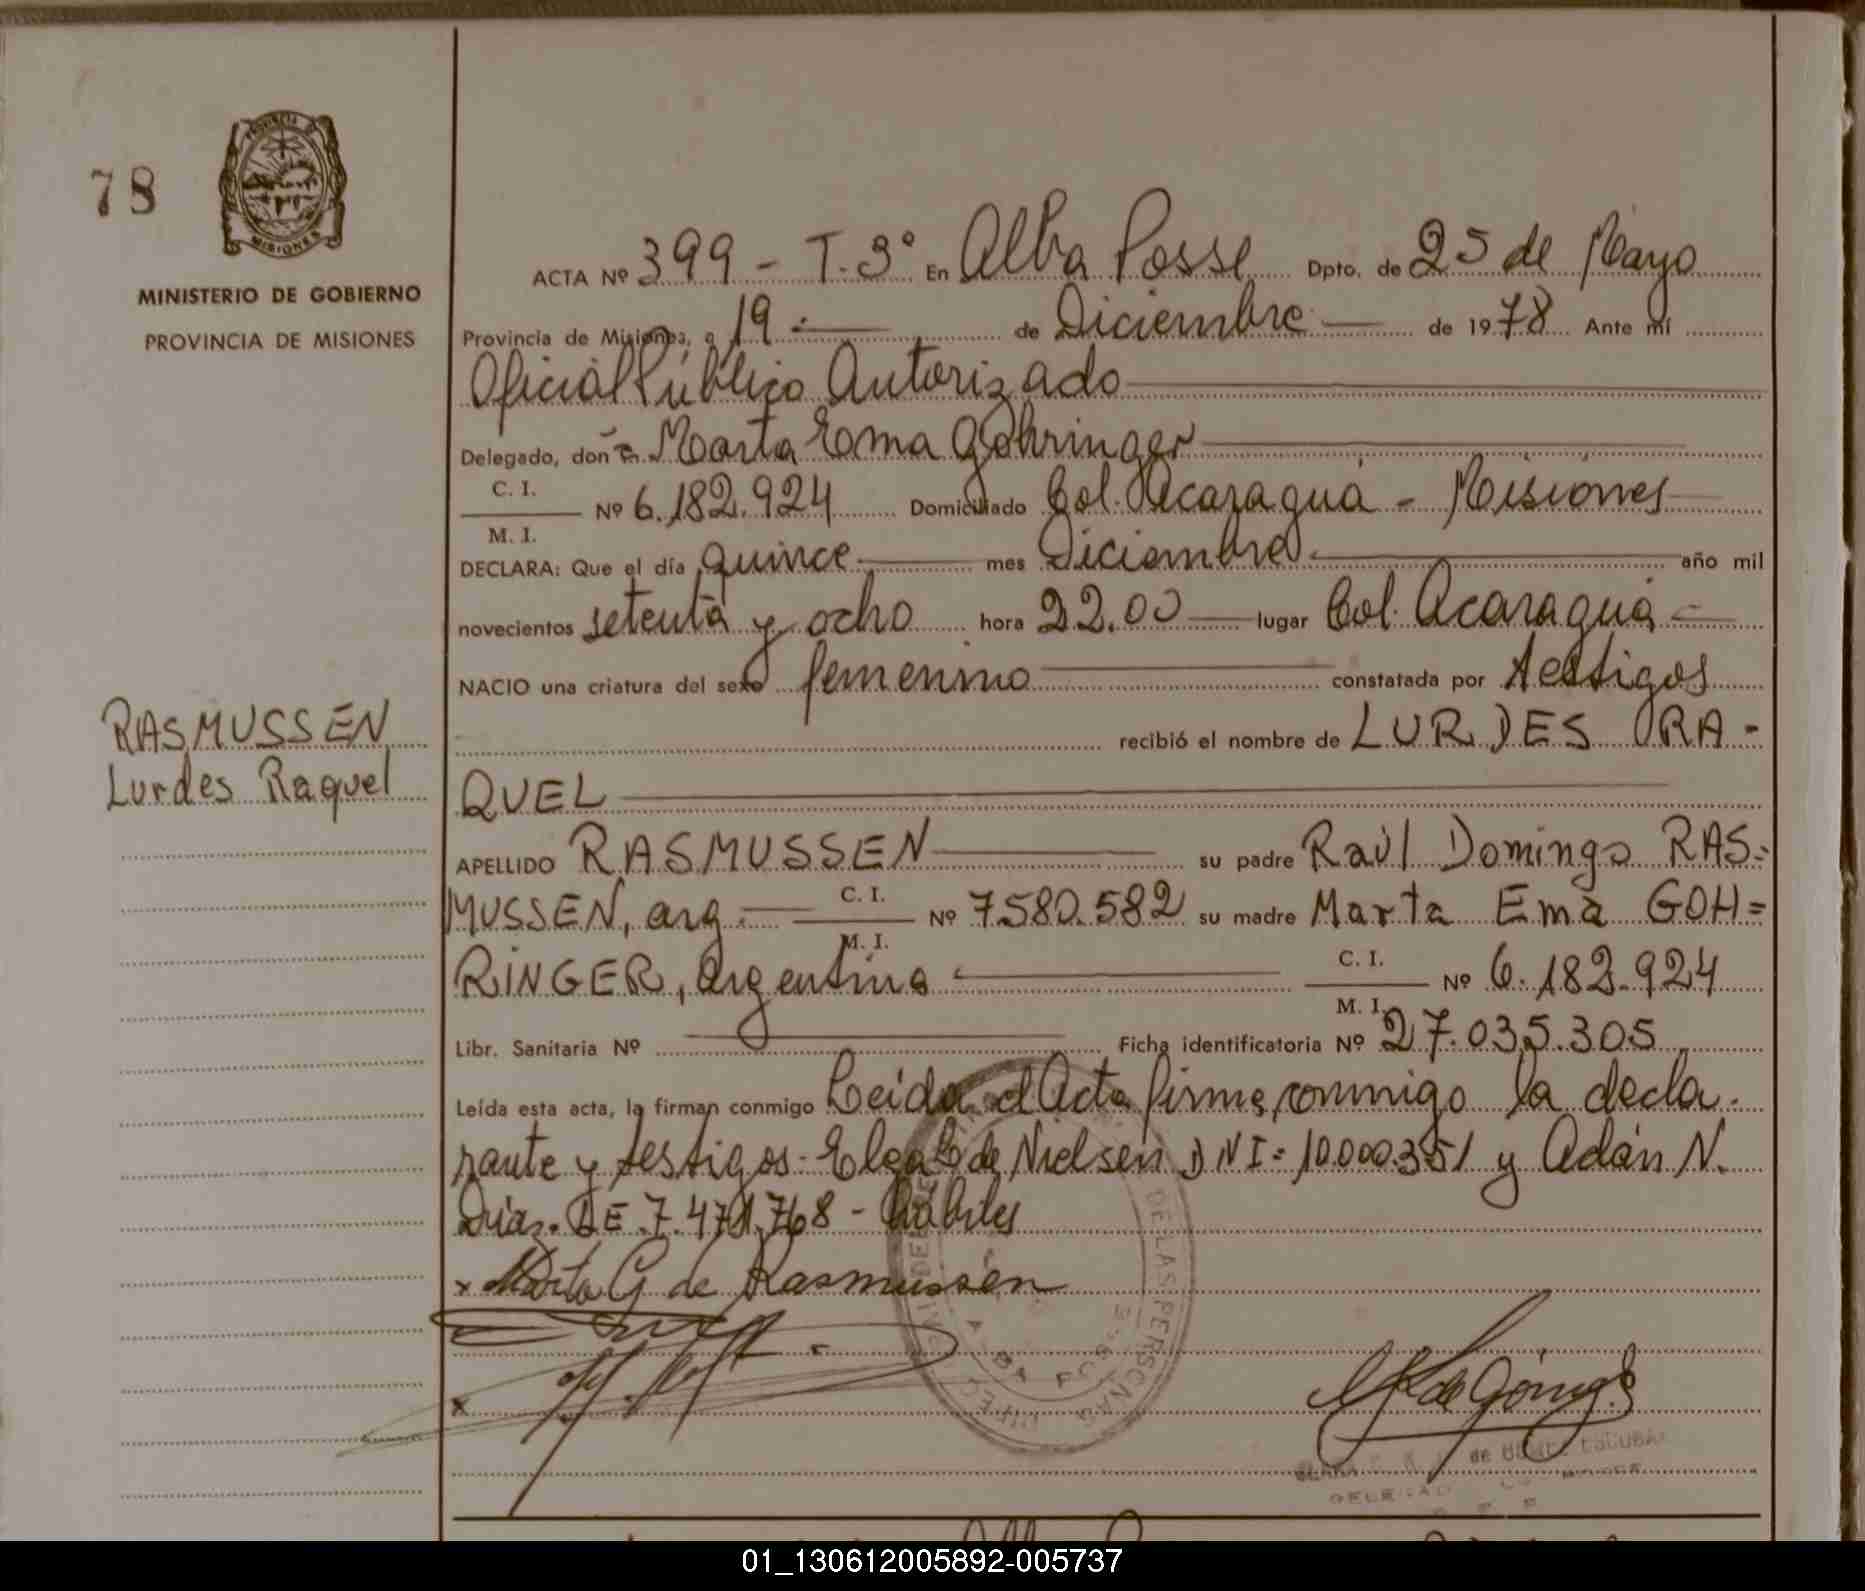 78
PROVINCIA DE
MISIONES
MINISTERIO DE GOBIERNO
PROVINCIA DE MISIONES
RASMUSSEN
Lurdes Raquel
ACTA Nº 399 - T. 3º En Alba Posse Dpto. de 25 de Mayo
Provincia de Misiones, a 19 de Diciembre de 1978 Ante mí
Oficial Público Autorizado
Delegado, don ña Marta Ema Gohringer
C. I.
M. I. Nº 6.182.924 Domiciliado Col. Acaraguá - Misiones
DECLARA: Que el día quince mes Diciembre año mil
novecientos setenta y ocho hora 22.00 lugar Col. Acaraguá
NACIO una criatura del sexo femenino constatada por testigos
recibió el nombre de LURDES RA-
QUEL
APELLIDO RASMUSSEN su padre Raúl Domingo RAS=
MUSSEN, arg. C. I. M. I. Nº 7.580.582 su madre Marta Ema GOH=
RINGER, argentina C. I. M. I. Nº 6.182.924
Libr. Sanitaria Nº Ficha identificatoria Nº 27.035.305
Leída esta acta, la firman conmigo Leída el Acta firma conmigo la decla-
rante y testigos- de Nielsen DNI= 10.000.351 y Adán N.
Díaz. DE 7.471.768 - Hábiles
x Marta G de Rasmussen
x
DE LAS PERSONAS
ALBA POSSE